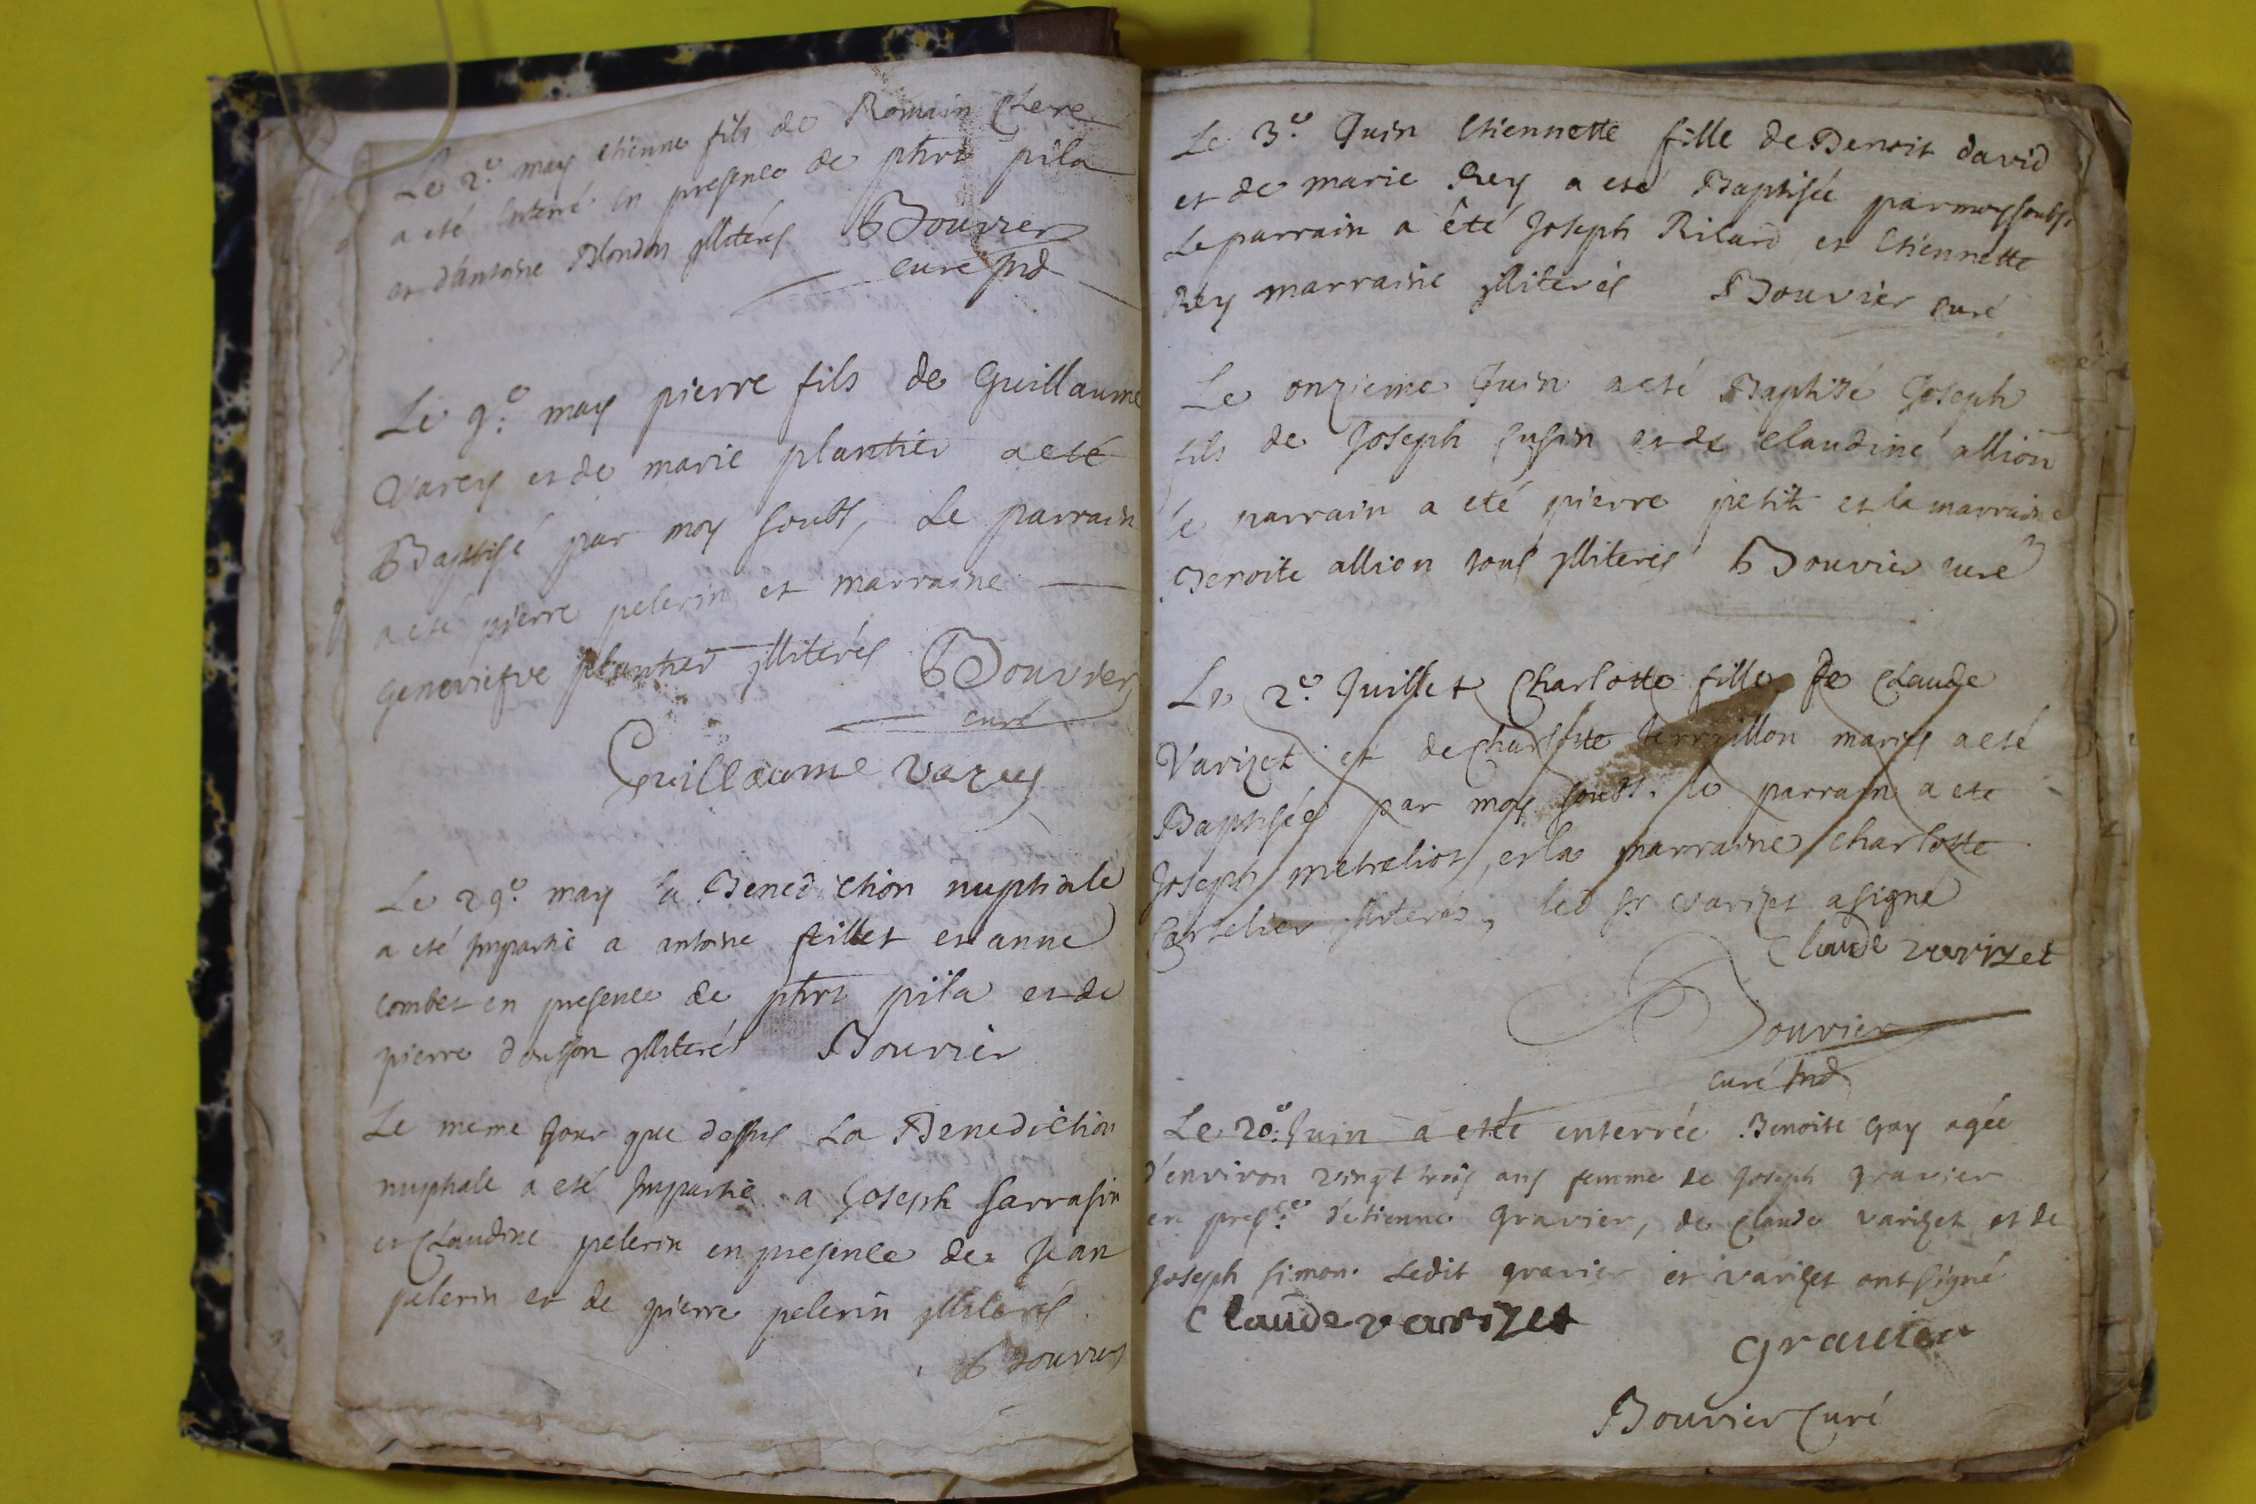 Le 2.e may etienne fils de Romain Chere
a eté enterré en presence de phrt pila
et d'antoine Blondon jlliterés Bouvier
curé jnd
Le 9.e may pierre fils de Guillaume
Varey et de marie plantier a eté
Baptisé par moy soubs, Le parrain
a eté pierre pelerin et marraine
geneviefve plantier jlliterés Bouvier
curé
Guillaume varey
Le 29.e may la Benediction nuptiale
a eté jmpartie a antoine feillet et anne
combet en presence de phrt pila et de
pierre jlliterés Bouvier
Le meme jour que dessus La Benediction
nuptiale a eté jmpartie a Joseph Sarrasin
et Claudine pelerin en presence de Jean
pelerin et de pierre pelerin jlliterés
Bouvier
Le 3.e Juin Etiennette fille de Benoit david
et de marie Rey a eté Baptisée par moy soubs.
Le parrain a êté Joseph Ricard et Etiennette
Rey marraine jlliterés Bouvier curé
Le onzieme Juin a eté Baptisé Joseph
fils de Joseph et de Claudine allion
le parrain a eté pierre petit et la marraine
Benoite allion tous jlliterés Bouvier curé
Le 2.e Juillet Charlotte fille de Claude
Varizet et de Charlotte terraillon maries a eté
Baptisée par moy soubs. le parrain a ete
Joseph et la marraine Charlotte
jliterés, led sr varizet a signé
Claude varizet
Bouvier
curé jnd
Le 20.e Juin a eté enterrée Benoite Gay agée
d'environ vingt trois ans femme de Joseph gravier
en pres.ce d'étienne gravier, de Claude varizet et de
Joseph simon. Ledit gravier et varizet ont signé
Claude varizet
gravier
Bouvier Curé